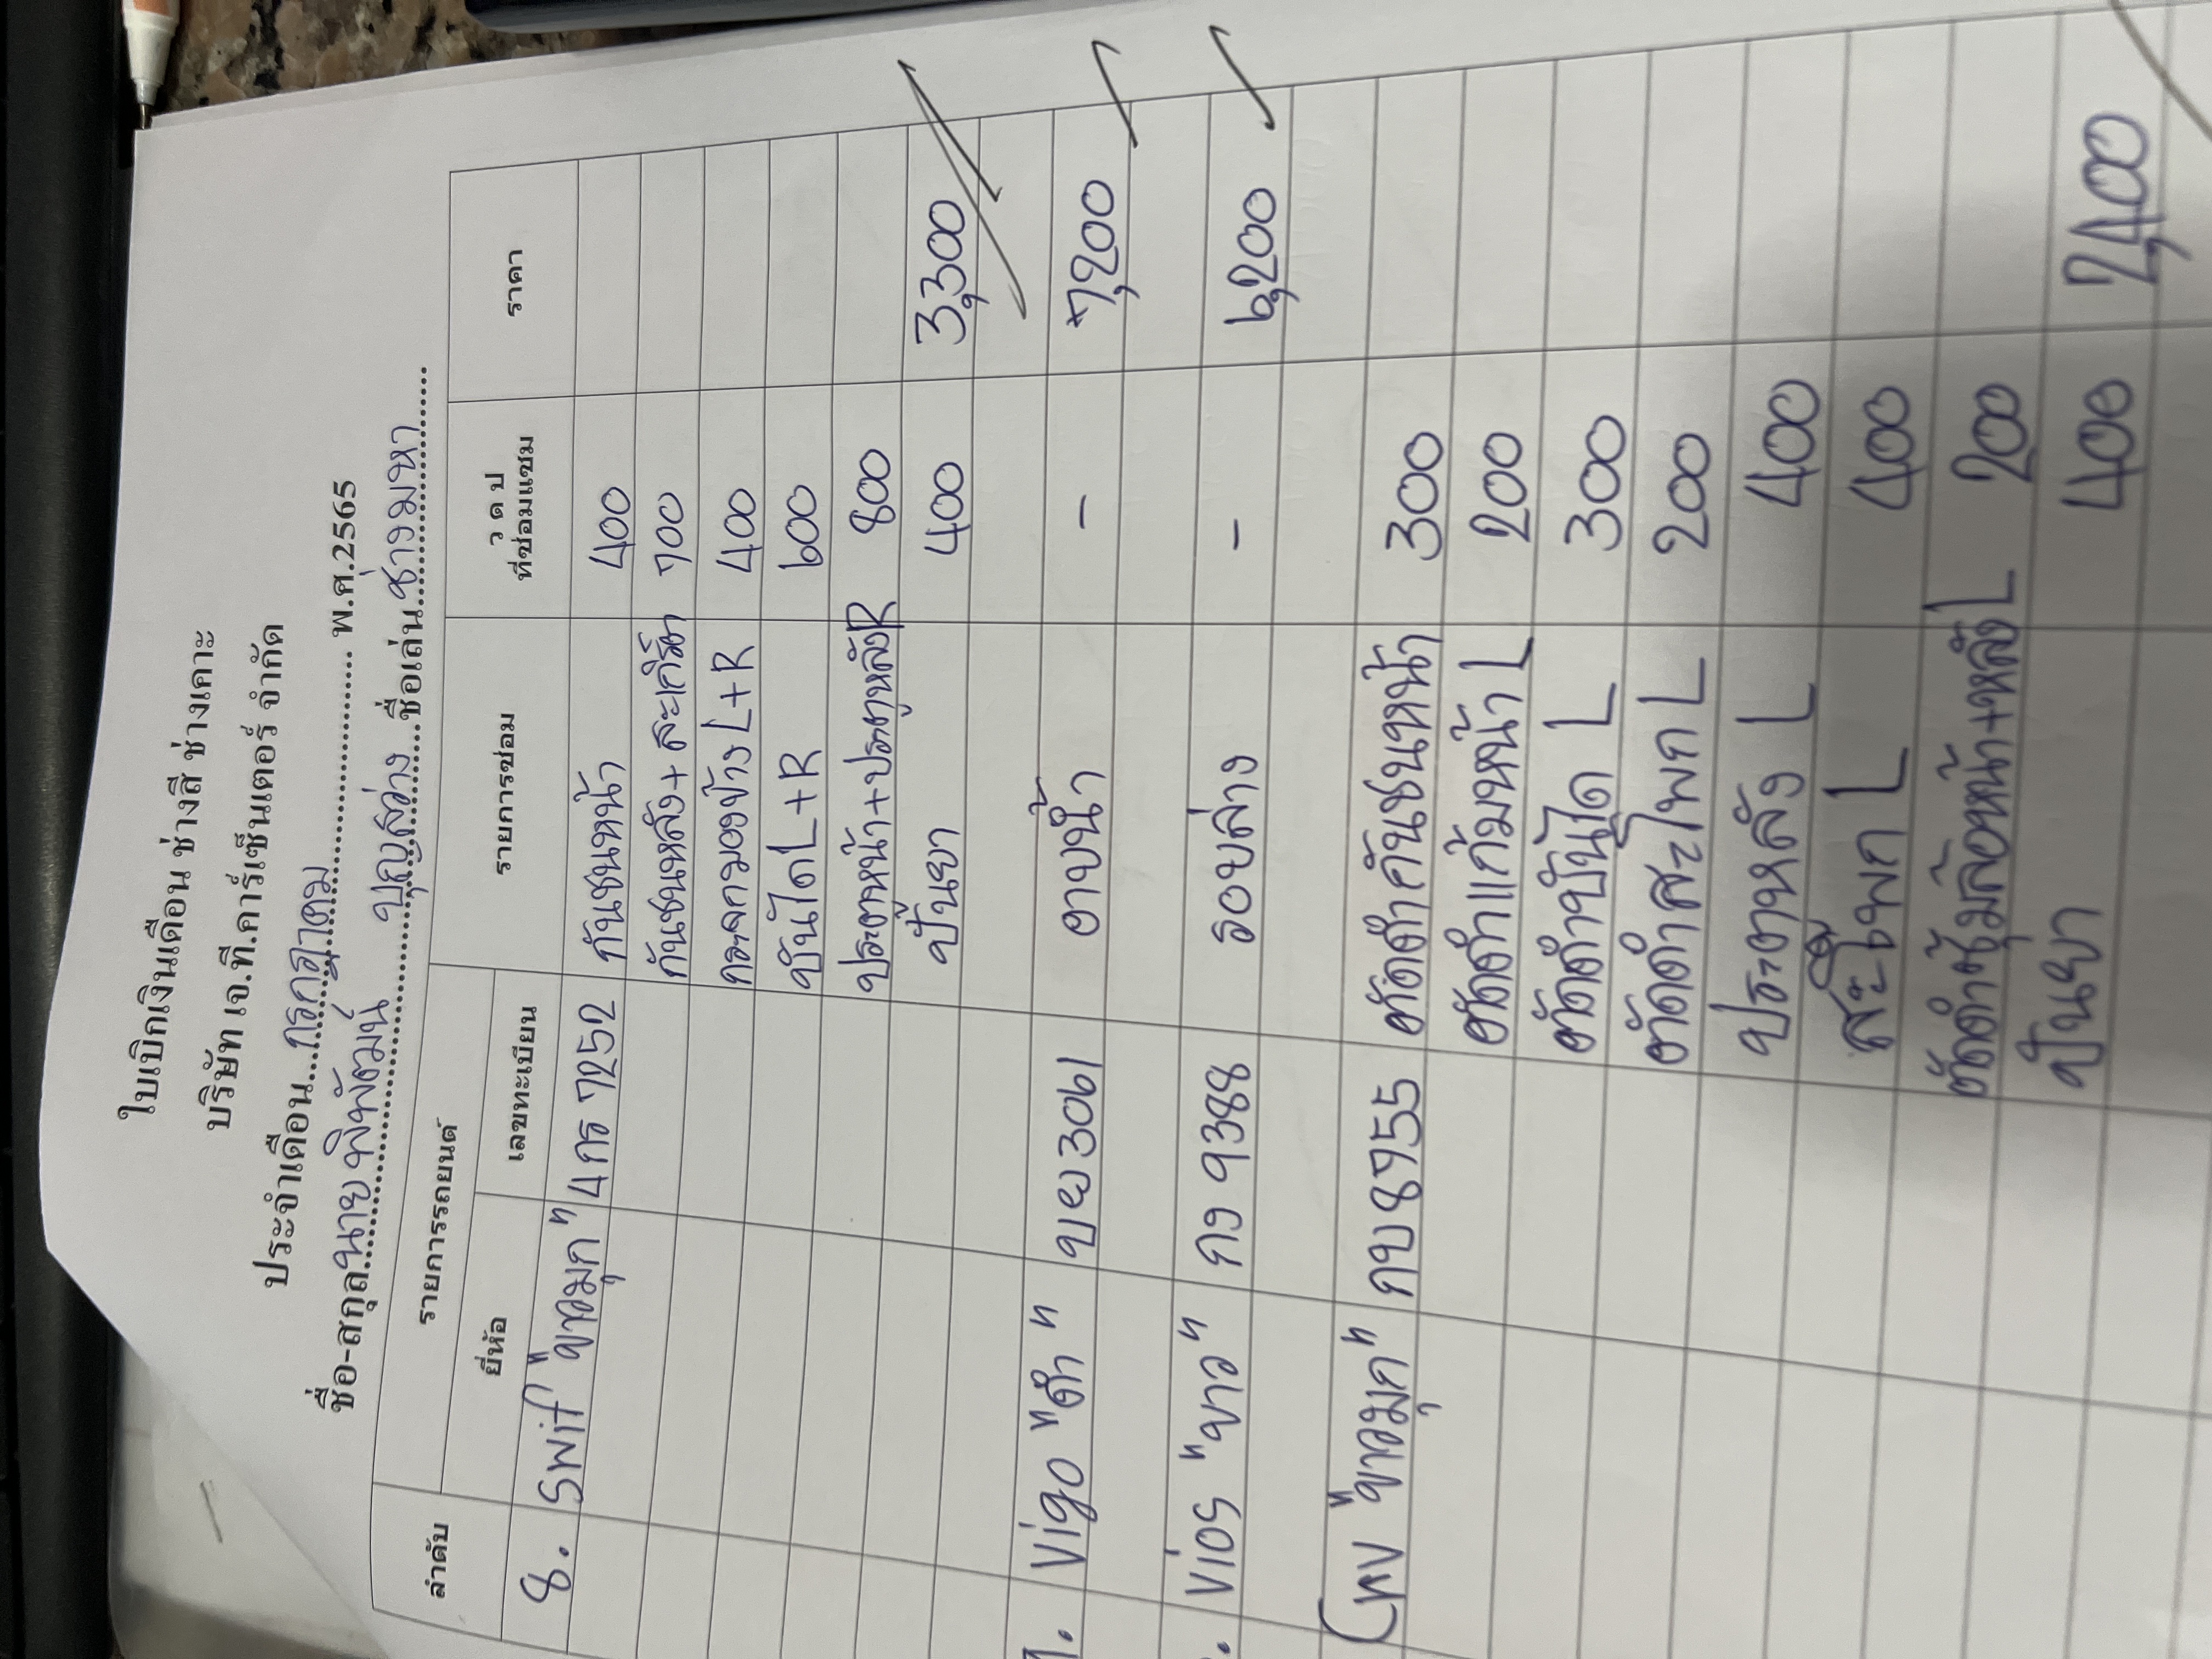 ใบเบิกเงินเดือน ช่างสี ช่างเกาะ
บริษัท เจ.ที.คาร์เซ็นเตอร์ จำกัด
ประจำเดือน...กรกฎาคม.................... พ.ศ.2565
ชื่อ-สกุล..นาย พิพัฒน์ บุญสว่าง ชื่อเล่น..ช่างมหา
ลำดับ รายการรถยนต์ รายการซ่อม ว ด ป ที่ซ่อมแซม ราคา
ยี่ห้อ เลขทะเบียน
8. Swif "ขาวมุก" 4กร 7252 กันชนหน้า 400
กันชนหลัง+สะเกิ๊ต 700
กระจกมองข้าง L+R 400
บันได L+R 600
ประตูหน้า+ประตูหลัง R 800
ปั้นยา 400 3,300
Vigo "ดำ" ขย 3061 อาบน้ำ - 7,200
Vios "ขาว" กง 9388 รอบล่าง - 6,200
"ขาวมุก" กบ 8955 ตัดดำกันชนหน้า 300
ตัดดำแก้มหน้า L 200
ตัดดำบันได L 300
ตัดดำสะโพก L 200
ประตูหลัง L 400
สะโพก L 400
ตัดดำซุ้มล้อหน้า+หลัง L 200
ปั้นยา 400 2,400